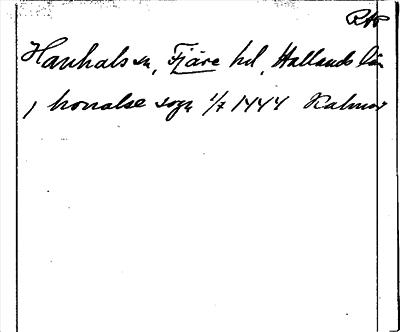 RAP
Hanhals sn, Fjäre hd, Hallands län
j honalse sogn 1/7 1444 Kalmar